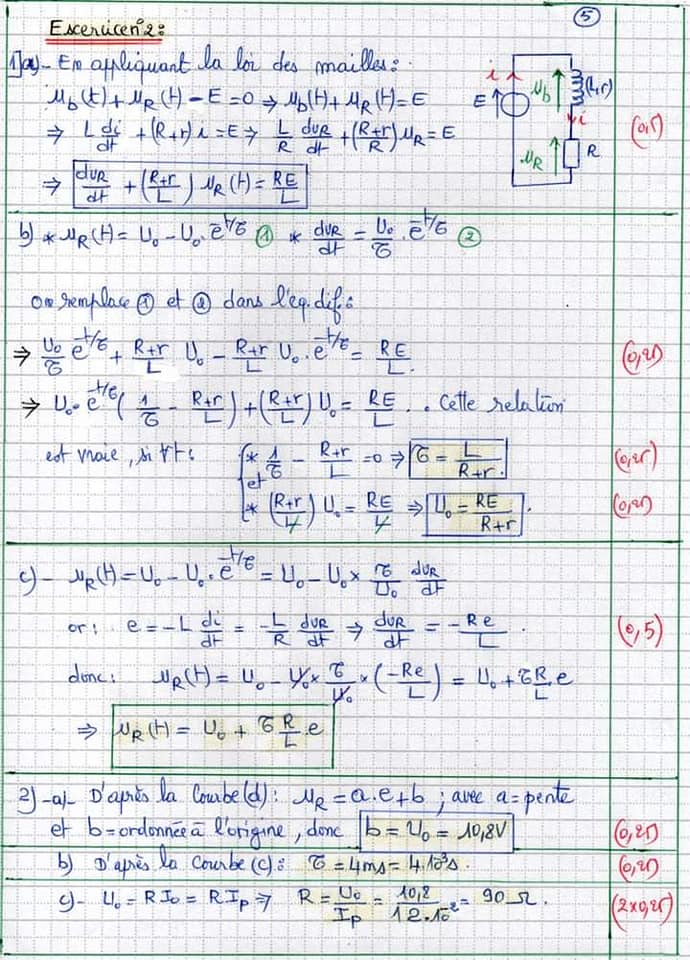 5
Exercice n°2:
1) a) - En appliquant la loi des mailles:
u_b(t) + u_R(t) - E = 0 ⇒ u_b(t) + u_R(t) = E
⇒ L di/dt + (R+r) i = E ⇒ L/R du_R/dt + ((R+r)/R) u_R = E
(0,5)
⇒ du_R/dt + ((R+r)/L) u_R(t) = RE/L
i
E
u_b
(L,r)
i
u_R
R
b) * u_R(t) = U₀ - U₀.e^(-t/τ) ① * du_R/dt = U₀/τ . e^(-t/τ) ②
on remplace ① et ② dans l'eq.dif:
⇒ U₀/τ e^(-t/τ) + (R+r)/L U₀ - (R+r)/L U₀.e^(-t/τ) = RE/L.
(0,25)
⇒ U₀.e^(-t/τ) (1/τ - (R+r)/L) + ((R+r)/L) U₀ = RE/L . . Cette relation
est vraie, si ∀t: { * 1/τ - (R+r)/L = 0 ⇒ τ = L/(R+r).
(0,25)
et
* ((R+r)/L) U₀ = RE/L ⇒ U₀ = RE/(R+r).
(0,25)
c) - u_R(t) = U₀ - U₀.e^(-t/τ) = U₀ - U₀ × τ/U₀ du_R/dt
or: e = -L di/dt = -L/R du_R/dt ⇒ du_R/dt = -Re/L.
(0,5)
donc: u_R(t) = U₀ - U₀ × τ/U₀ × (-Re/L) = U₀ + τ R/L e
⇒ u_R(t) = U₀ + τ R/L . e
2) -a) - D'après la Courbe(d): u_R = a.e + b ; avec a = pente
et b = ordonnée à l'origine, donc b = U₀ = 10,8V
(0,25)
b) D'après la Courbe (c): τ = 4ms = 4.10⁻³s.
(0,25)
c) - U₀ = RI₀ = RI_p ⇒ R = U₀/I_p = 10,8/12.10⁻² = 90 Ω.
(2x0,25)